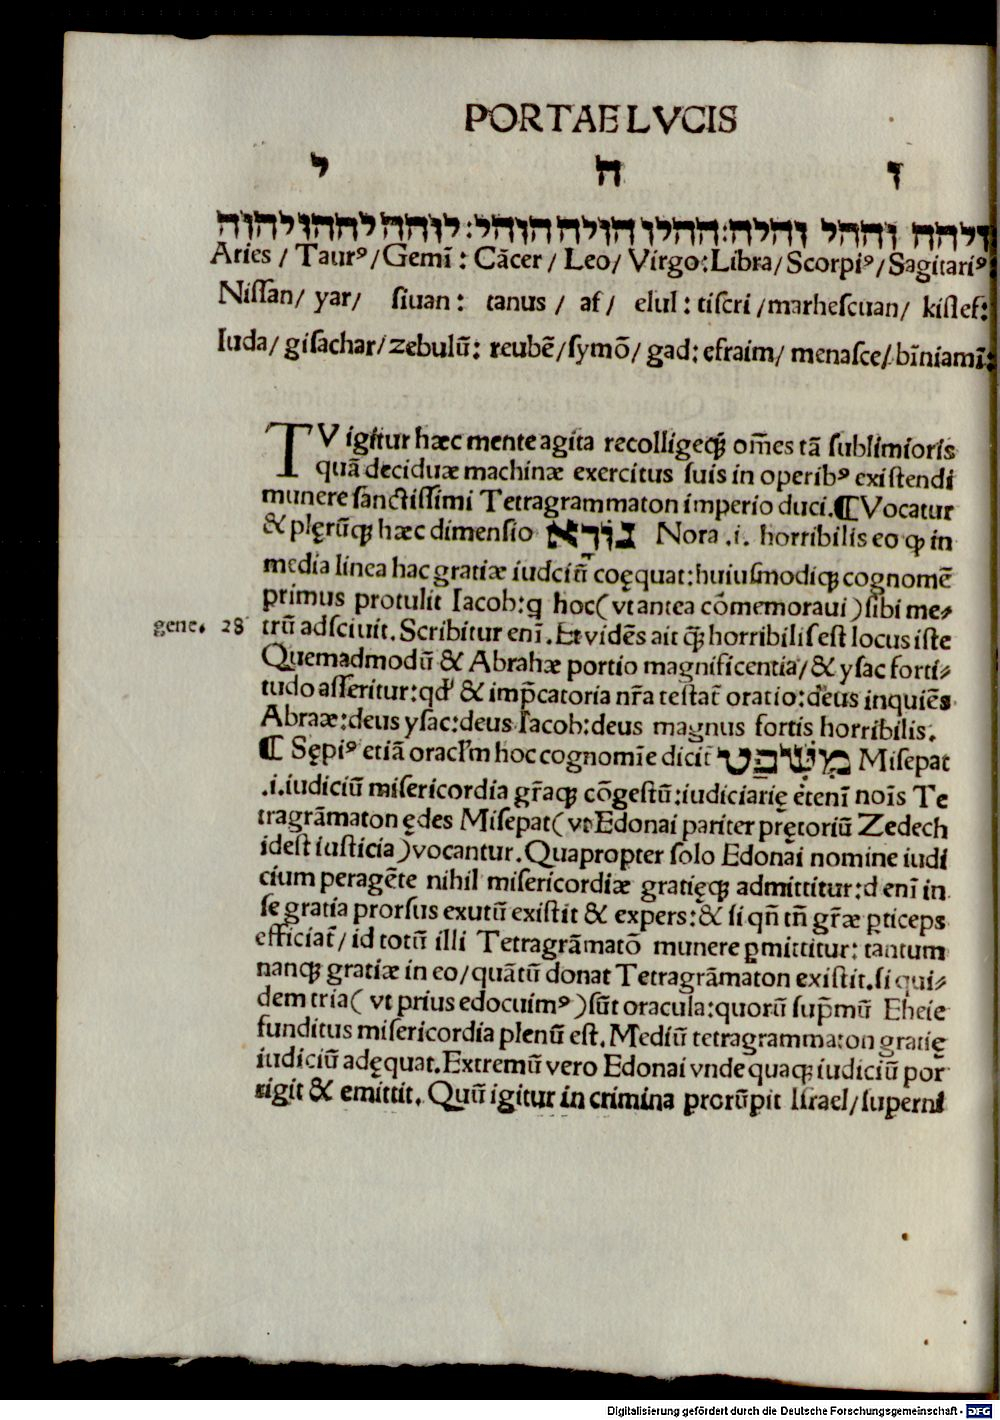 PORTAE LVCIS
י ה ו
יהוה יההו יוהה: הוהי הויה ההוי: והיה וההי ויהה
Aries / Taurꝰ/Gemī : Cācer / Leo/ Virgo:Libra/ Scorpiꝰ/Sagitariꝰ:
Nissan/ yar/ siuan : tanus / af/ elul : tiscri /marhescuan/ kislef:
Iuda/ gisachar/zebulū: reubē/symō/ gad: efraim/ menasce/.bīniamī:
TV igitur hæc mente agita recolligeqꝫ om̄es tā sublimioris
quā deciduæ machinæ exercitus suis in operibꝰ existendi
munere sanctissimi Tetragrammaton imperio duci.¶Vocatur
& plęrūqꝫ hæc dimensio נורא Nora .i. horribilis eo ꝙ in
media linea hac gratiæ iudciū coęquat:huiusmodiqꝫ cognomē
primus protulit Iacob:q hoc( vt antea cōmemoraui )sibi me⸗
gene. 28 trū adsciuit.Scribitur enī.Et vidēs ait ꝙ̄ horribilis est locus iste
Quemadmodū & Abrahæ portio magnificentia/& ysac forti⸗
tudo asseritur:qd' & imp̄catoria nr̄a testat̄ oratio:deus inquiēs
Abraæ:deus ysac:deus Iacob:deus magnus fortis horribilis.
¶ Sępiꝰ etiā oracl'm hoc cognomīe dicit̄ משפט Misepat
.i.iudiciū misericordia gr̄aqꝫ cōgestū:iudiciarię etenī noīs Te
tragrāmaton ędes Misepat( vt Edonai pariter prętoriū Zedech
idest iusticia )vocantur.Quapropter solo Edonai nomine iudi
cium peragēte nihil misericordiæ gratięqꝫ admittitur:d enī in
se gratia prorsus exutū existit & expers:& si qn̄ tn̄ gr̄æ ꝑticeps
efficiat̄/ id totū illi Tetragrāmatō munere ꝑmittitur: tantum
nanqꝫ gratiæ in eo/quātū donat Tetragrāmaton existit.si qui⸗
dem tria( vt prius edocuimꝰ )sūt oracula:quorū sup̄mū Eheie
funditus misericordia plenū est.Mediū tetragrammaton gratię
iudiciū adęquat.Extremū vero Edonai vnde quaqꝫ iudiciū por
rigit & emittit. Quū igitur in crimina prorūpit Israel/superni
Digitalisierung gefördert durch die Deutsche Forschungsgemeinschaft - DFG